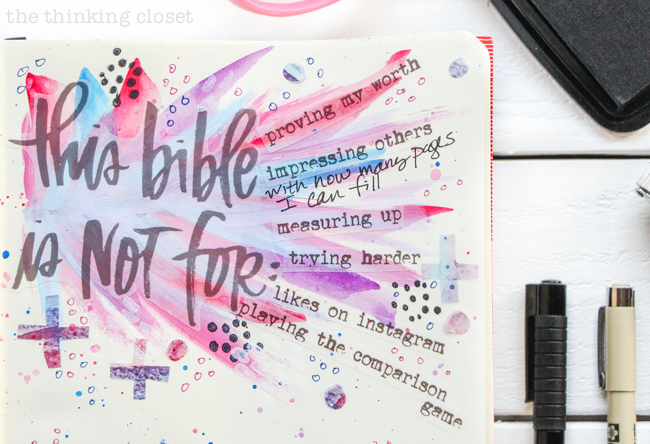 the thinking closet
this bible
is NOT for:
proving my worth
impressing others
with how many pages
I can fill
measuring up
trying harder
likes on instagram
playing the comparison
game